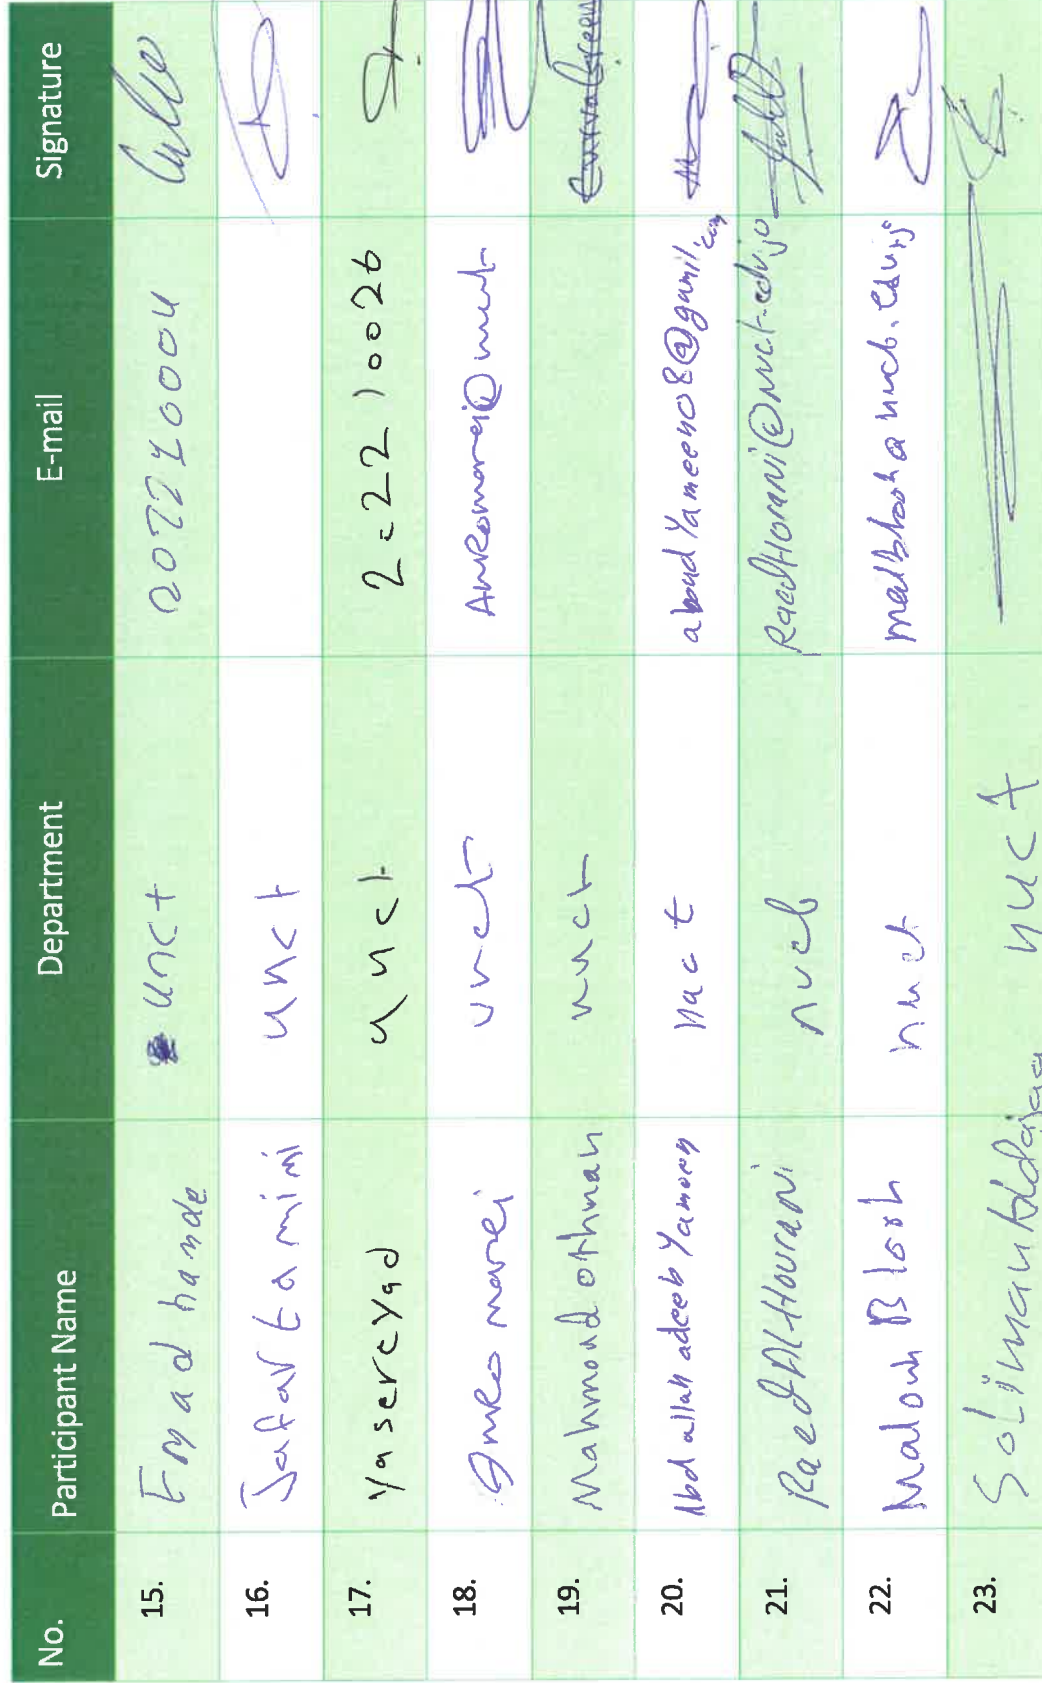 No. Participant Name Department E-mail Signature
15. Emad hamde unct 2022210004
16. Jafar tamimi unct
17. Yasereyad unct 2022210026
18. Amro marei unct Amromarei@unct
19. Mahmoud othman nuct
20. Abd allah adeeb Yameen nuct aboudYameen08@gamil.com
21. Raed Al Hourani nuct RaedHorani@nuct.edu.jo
22. nuct
23. Soliman nuct